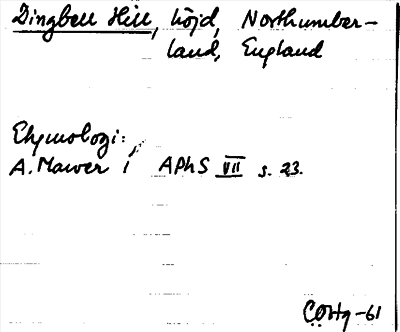 Dingbell Hill, höjd, Northumber-
land, England
Etymologi:
A. Mawer i APhS VII s. 23.
COHg -61